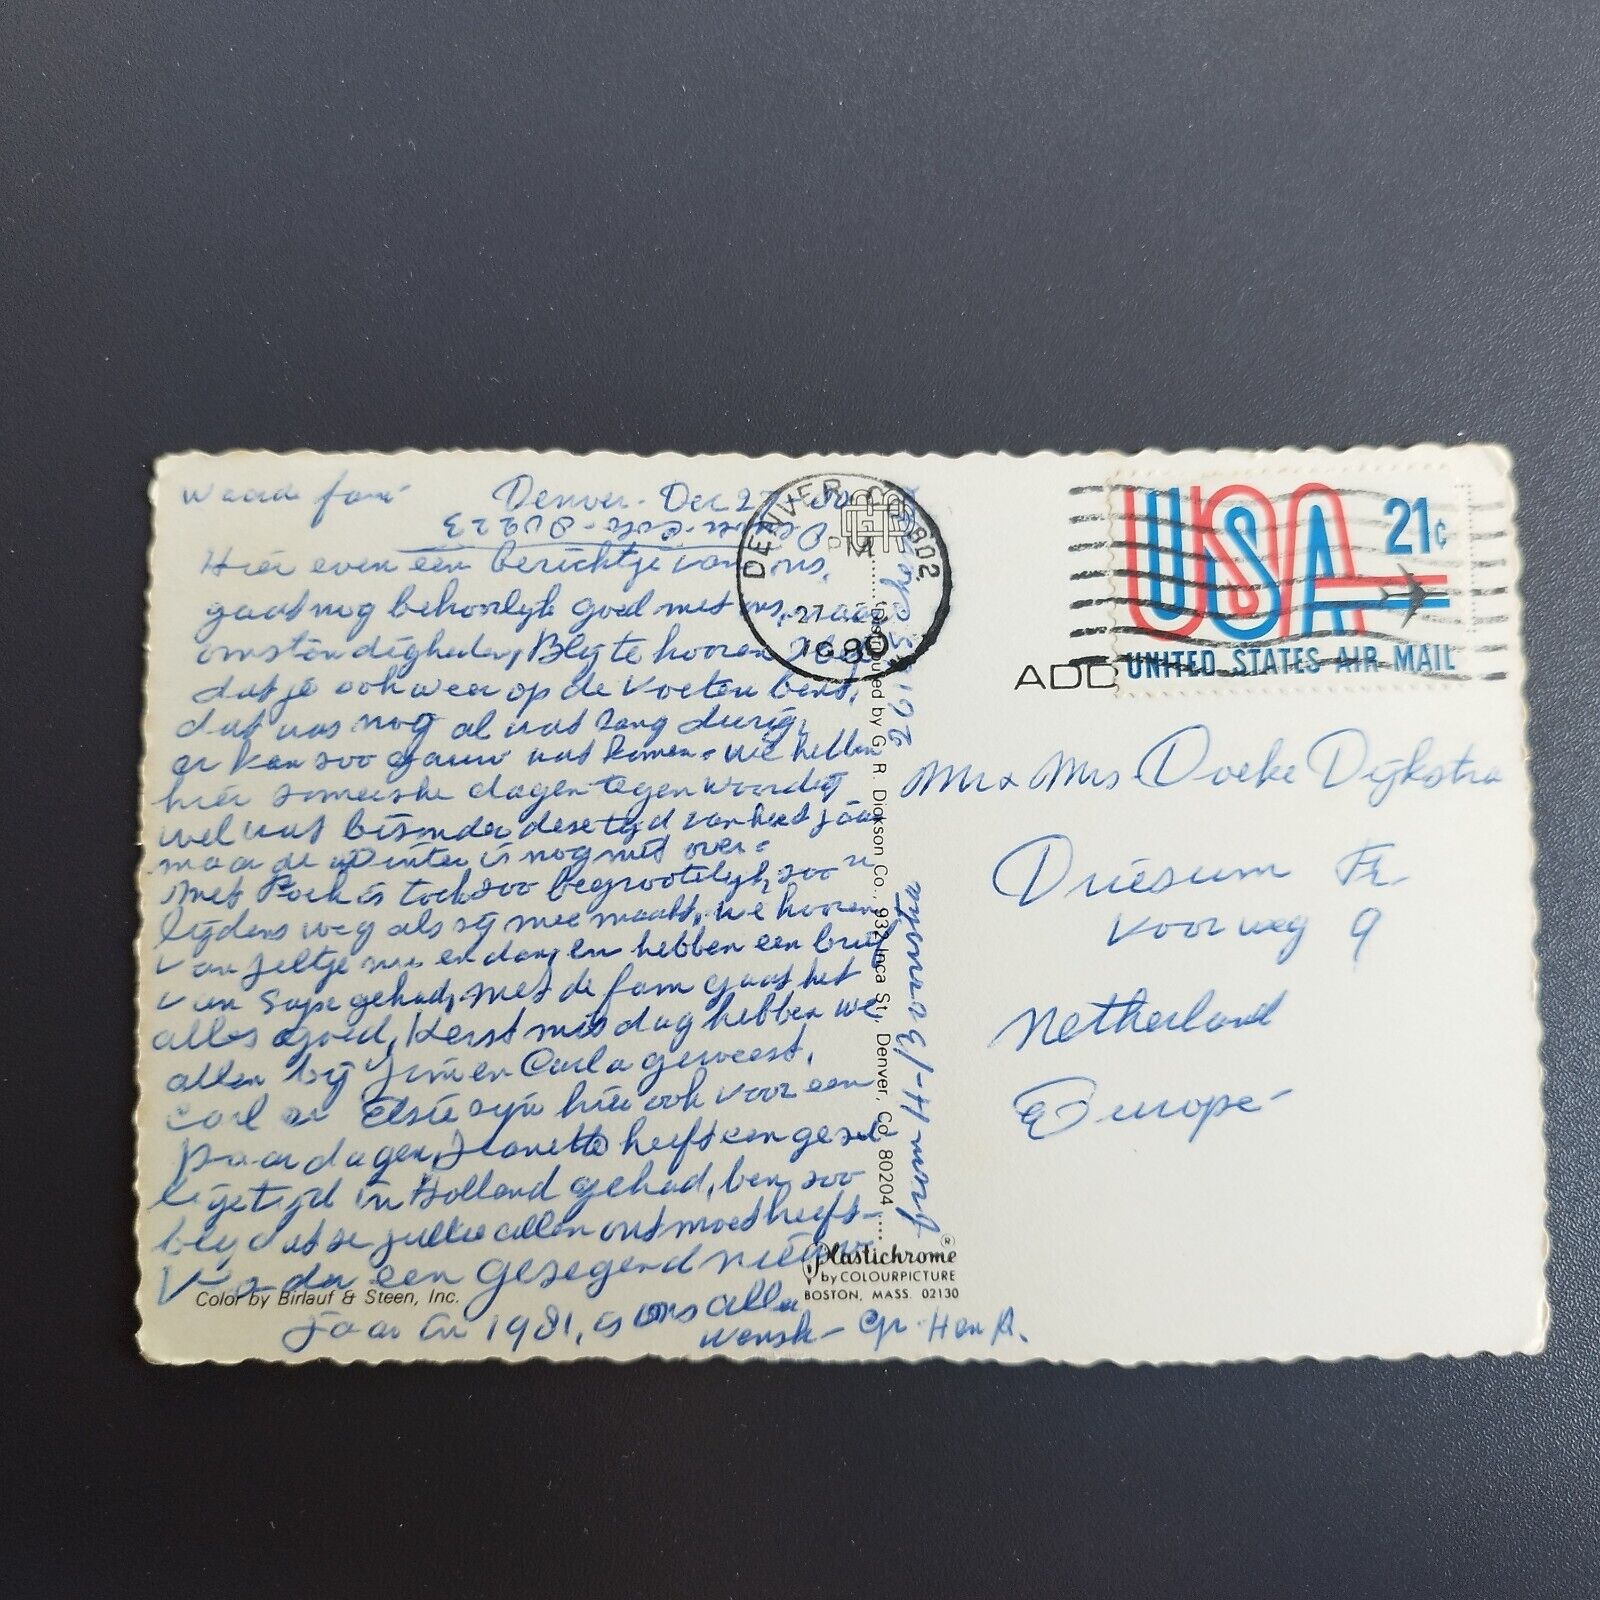 Waarde fam
Denver. Dec 27
Denver. Colo. 80223
Hier even een berichtje van ons,
gaat nog behoorlyk goed met ons, naar
omstandigheden, Bly te hooren
dat je ook weer op de voeten bent,
dat was nog al wat lang durig,
er kan zoo gauw wat komen. we hebben
hier zomerske dagen tegenwoordig
wel wat bisonder dese tyd van het jaar
maar de Winter is nog niet over.
Met is toch zoo begrootelyk, zoo'n
lydens weg als zy mee maakt, we hooren
van Jeltje nu en dan, en hebben een brief
van gehad, Met de fam gaat het
alles goed, Kerstmis dag hebben we
allen by Jim en Carla geweest.
Carl en Elsie zyn hier ook voor een
paar dagen, Jeanette heeft een gesel-
lige tyd in Holland gehad, ben zoo
bly dat se jullie allen ontmoet heeft.
Verder een gezegend nieuw
jaar in 1981, is ons aller
wensch - Gr. Hen A.
from H.
DENVER CO 802
PM
27
1980
USA 21c
UNITED STATES AIR MAIL
Mr & Mrs Doeke Dijkstra
Driesum Fr.
Voorweg 9
Netherland
Europe
Distributed by G. R. Dickson Co., 932 Inca St., Denver, Co 80204
Color by Birlauf & Steen, Inc.
Plastichrome ®
by COLOURPICTURE
BOSTON, MASS. 02130